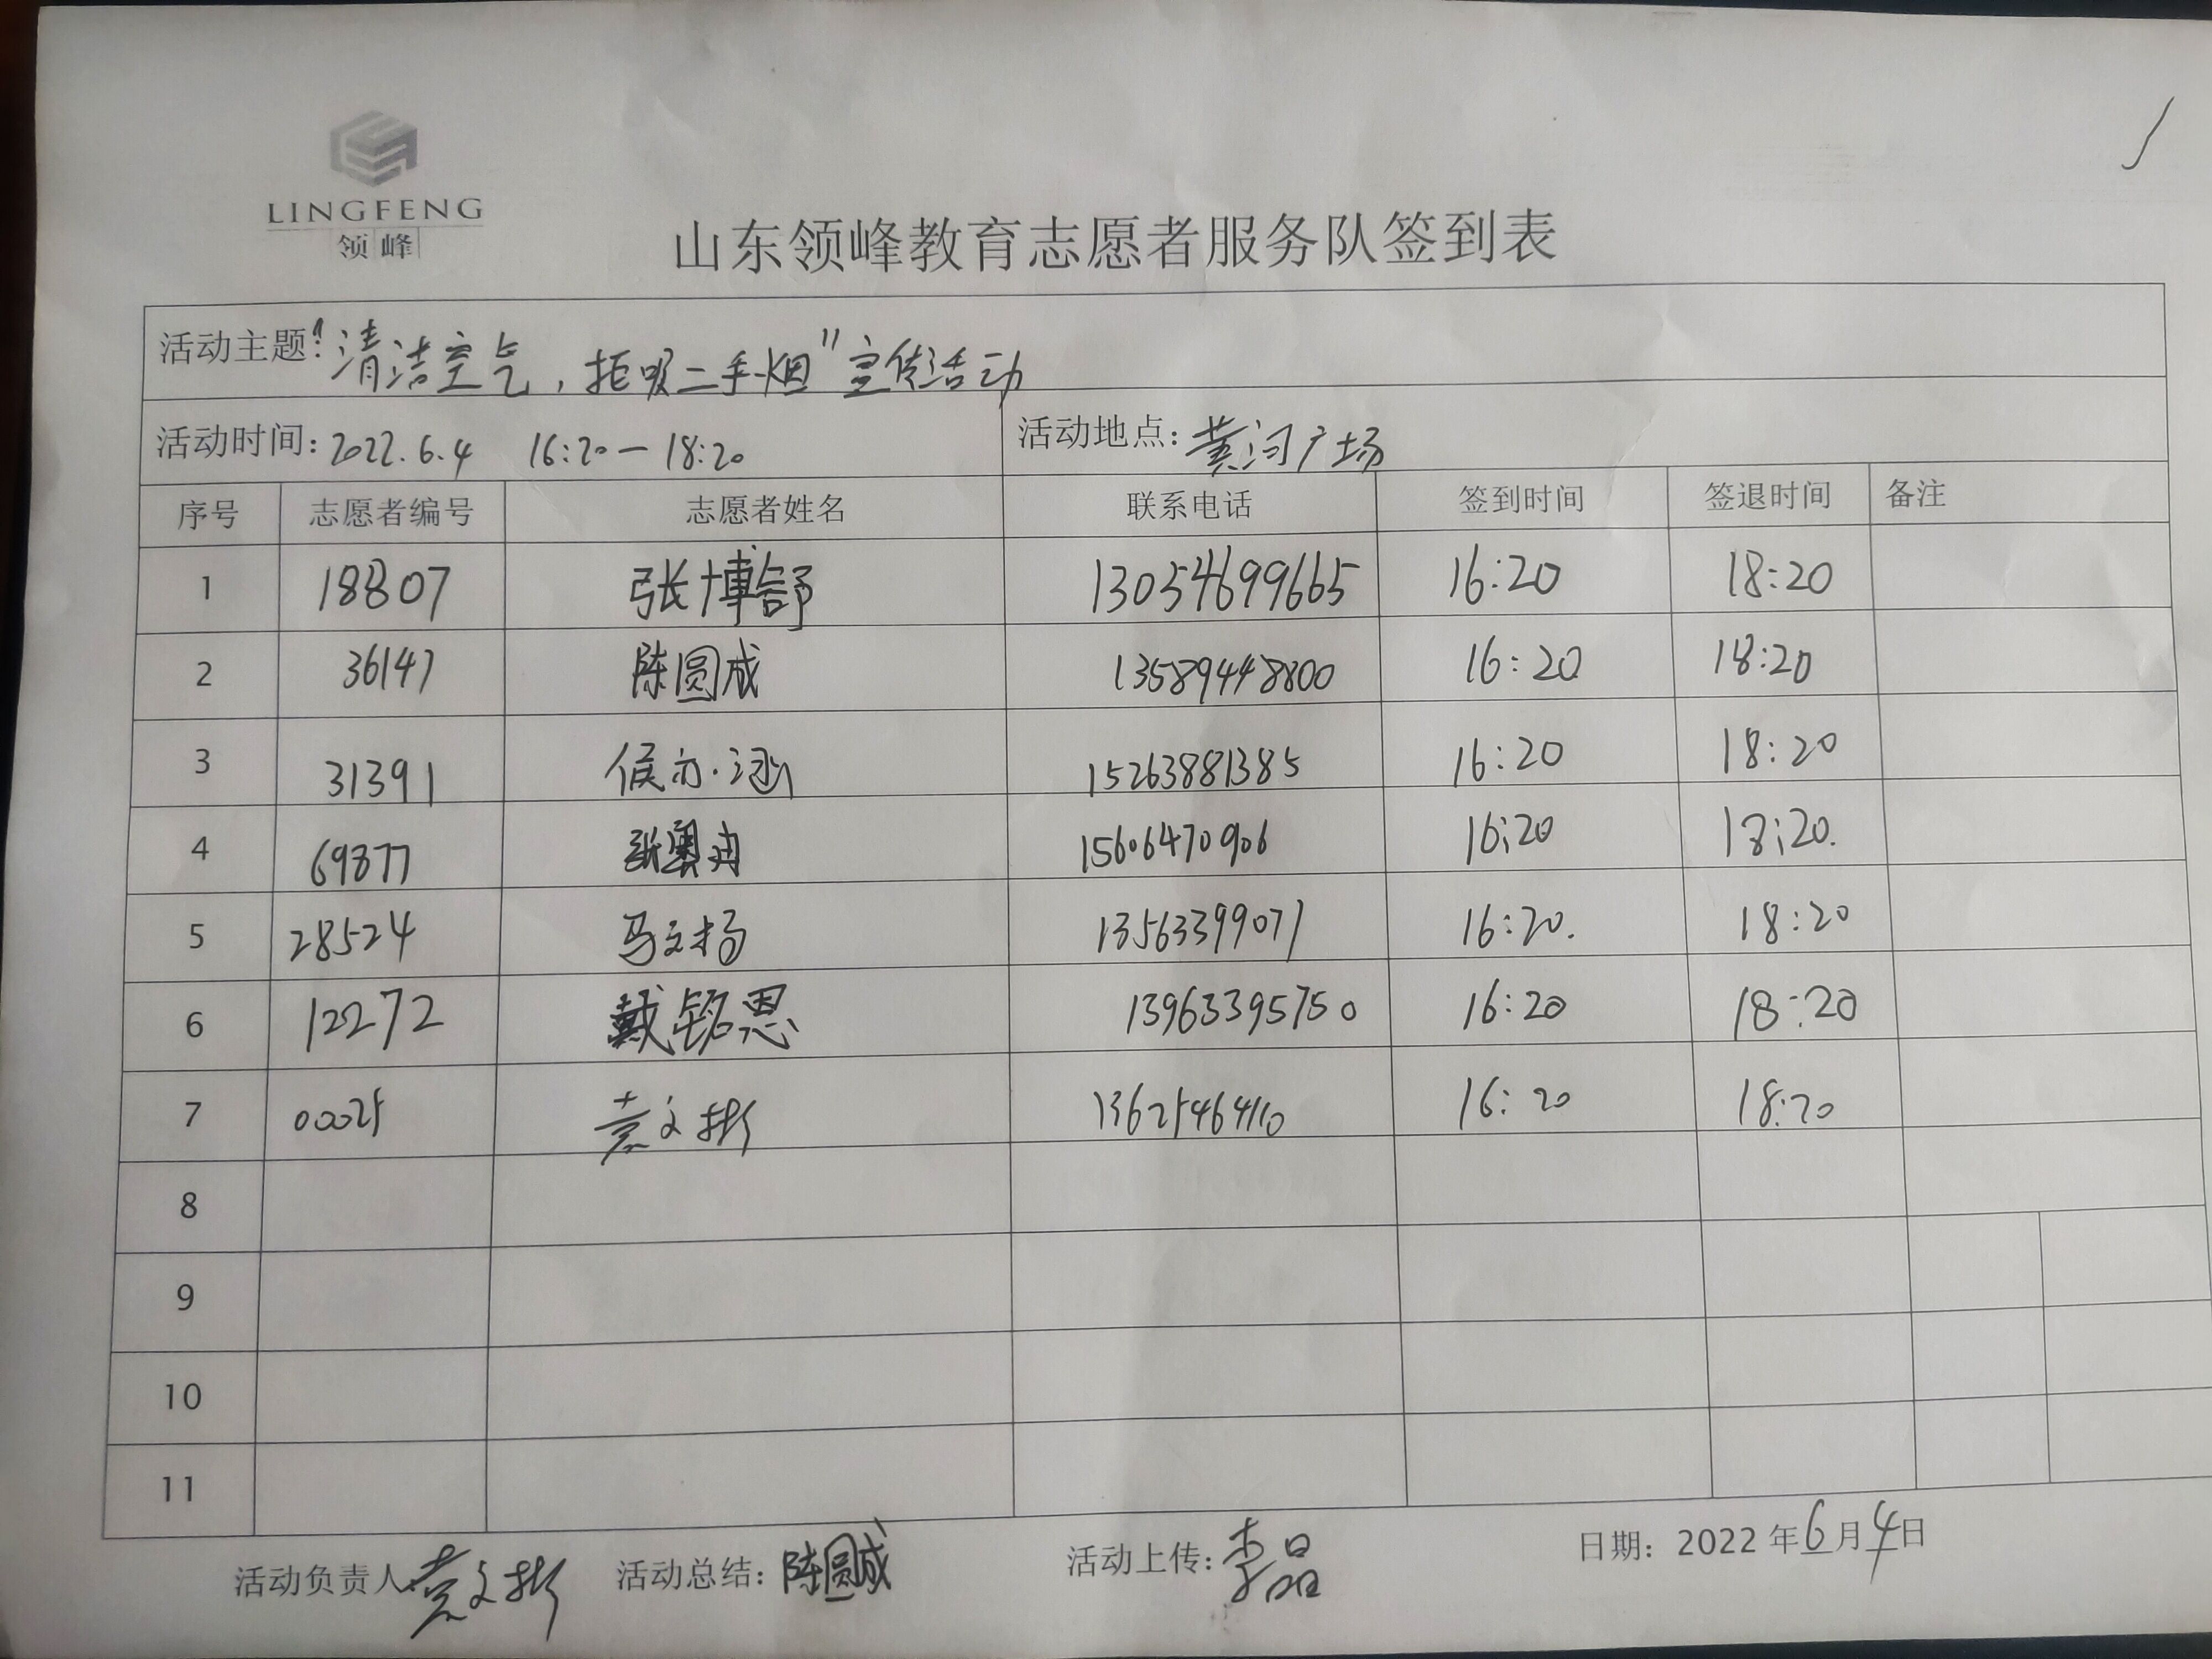 LINGFENG
领峰
山东领峰教育志愿者服务队签到表
活动主题:"清洁空气,拒吸二手烟"宣传活动
活动时间:2022.6.4 16:20—18:20 活动地点:黄河广场
序号 志愿者编号 志愿者姓名 联系电话 签到时间 签退时间 备注
1 18807 张博舒 13054699665 16:20 18:20
2 36147 陈圆成 13589448800 16:20 18:20
3 31391 侯亦涵 15263881385 16:20 18:20
4 69877 张奥冉 15606470906 16:20 18:20.
5 28524 马文扬 13563399077 16:20. 18:20
6 12272 戴铭恩 13963395750 16:20 18:20
7 00025 袁文彬 13625464110 16:20 18:20
8
9
10
11
活动负责人 袁文彬 活动总结:陈圆成 活动上传:李晶 日期:2022年6月4日